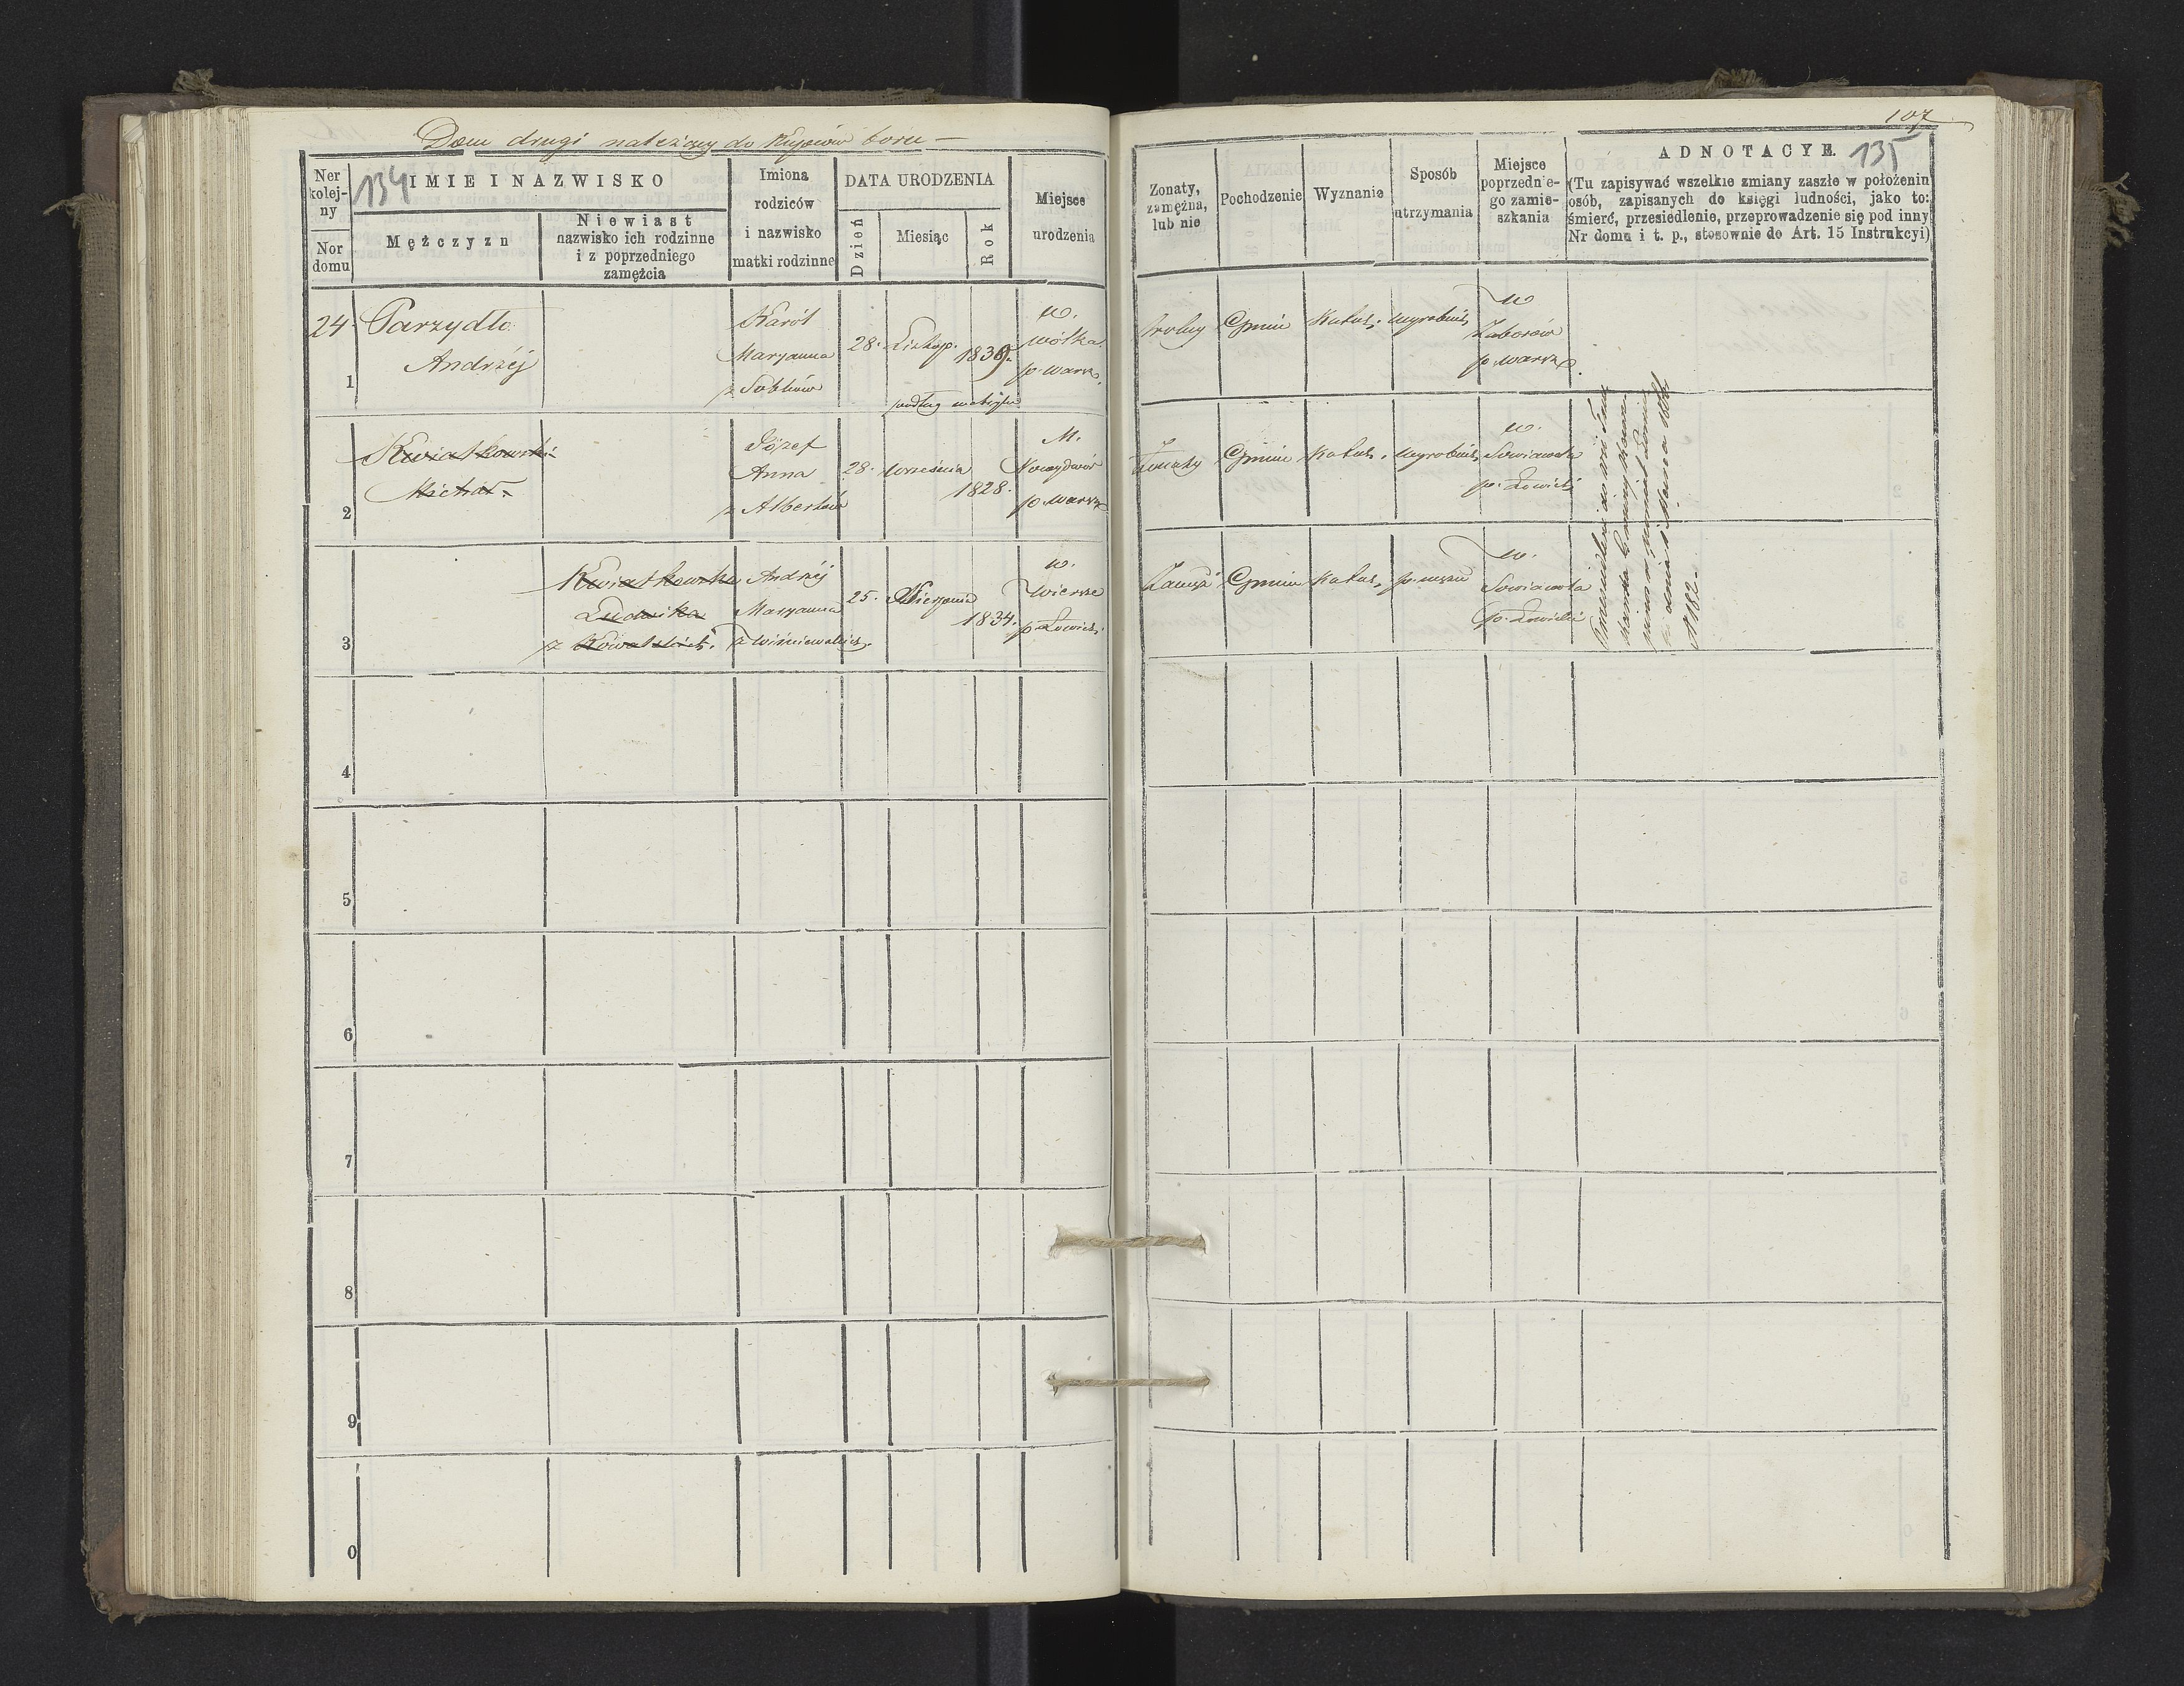 Dom drugi należący do boru
134
Ner kolejny
Nor domu
IMIE I NAZWISKO
Mężczyzn
Niewiast
nazwisko ich rodzinne
i z poprzedniego
zamężcia
Imiona
rodziców
i nazwisko
matki rodzinne
DATA URODZENIA
Dzień
Miesiąc
Rok
Miejsce
urodzenia
24
1
Parzydło
Andrzéj
Karól
Maryanna
z Sobków
28.
Listop.
1839.
podług metryki
w.
Wólka
p. Warsz.
2
Kwiatkowski
Michał
Józef
Anna
z
28.
Września
1828.
M.
Nowydwór
p. Warsz
3
Kwiatkowska
Ludwika
z Kowalskich
Andrzéj
Maryanna
z Wiśniewskich
25.
Sierpnia
1834.
w.
Wiersze
p. Łowick.
4
5
6
7
8
9
0
107
135
Zonaty,
zamężna,
lub nie
Pochodzenie
Wyznanie
Sposób
utrzymania
Miejsce
poprzednie-
go zamie-
szkania
ADNOTACYE
(Tu zapisywać wszelkie zmiany zaszłe w położeniu
osób, zapisanych do księgi ludności, jako to:
śmierć, przesiedlenie, przeprowadzenie się pod inny
Nr domu i t. p., stosownie do Art. 15 Instrukcyi)
wolny
Gmin
Katol.
wyrobnik
w
Zaborów
p. Warsz.
Żonaty
Gmin
Katol.
wyrobnik
w.
Sowiawola
p. Łowicki
Zamęż
Gmin
Katol.
p. mężu
w.
Sowiawola
p. Łowicki
do wsi
dnia Marca
N 182.